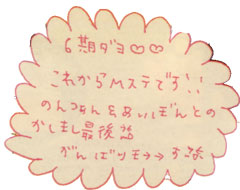 6期ダヨ♡♡
これからMステです!!
のんつぁんとあいぼんとの
かしまし最後
がんばりま→→す